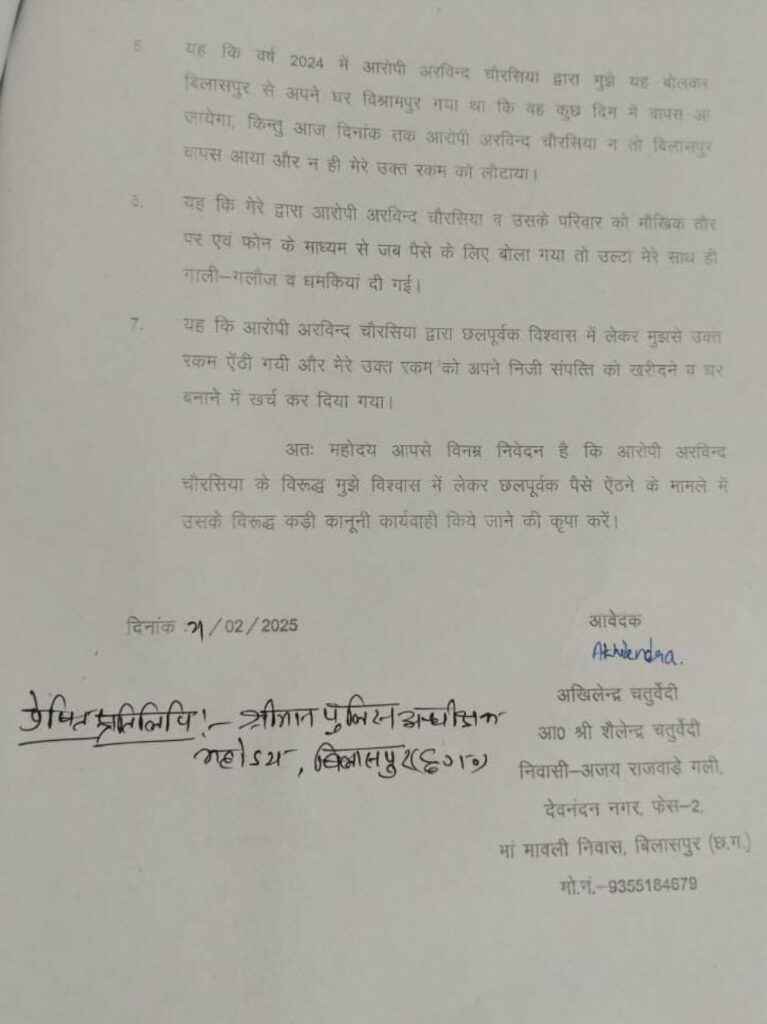 5. यह कि वर्ष 2024 में आरोपी अरविन्द चौरसिया द्वारा मुझे यह बोलकर
बिलासपुर से अपने घर विश्रामपुर गया था कि वह कुछ दिन में वापस आ
जायेगा, किन्तु आज दिनांक तक आरोपी अरविन्द चौरसिया न तो बिलासपुर
वापस आया और न ही मेरे उक्त रकम को लौटाया।
यह कि मेरे द्वारा आरोपी अरविन्द चौरसिया व उसके परिवार को मौखिक तौर
पर एवं फोन के माध्यम से जब पैसे के लिए बोला गया तो उल्टा मेरे साथ ही
गाली-गलौज व धमकियां दी गई।
7. यह कि आरोपी अरविन्द चौरसिया द्वारा छलपूर्वक विश्वास में लेकर मुझसे उक्त
रकम ऐंठी गयी और मेरे उक्त रकम को अपने निजी संपत्ति को खरीदने व घर
बनाने में खर्च कर दिया गया।
अतः महोदय आपसे विनम्र निवेदन है कि आरोपी अरविन्द
चौरसिया के विरूद्ध मुझे विश्वास में लेकर छलपूर्वक पैसे ऐंठने के मामले में
उसके विरूद्ध कड़ी कानूनी कार्यवाही किये जाने की कृपा करें।
दिनांक /02/2025
आवेदक
Akhilendra.
अखिलेन्द्र चतुर्वेदी
आ0 श्री शैलेन्द्र चतुर्वेदी
निवासी-अजय राजवाड़े गली,
देवनंदन नगर, फेस-2,
मां मावली निवास, बिलासपुर (छ.ग.)
मो.नं.-9355184679
प्रेषित प्रतिलिपि:- श्रीमान पुलिस अधीक्षक
महोदय, बिलासपुर (छ0ग0)